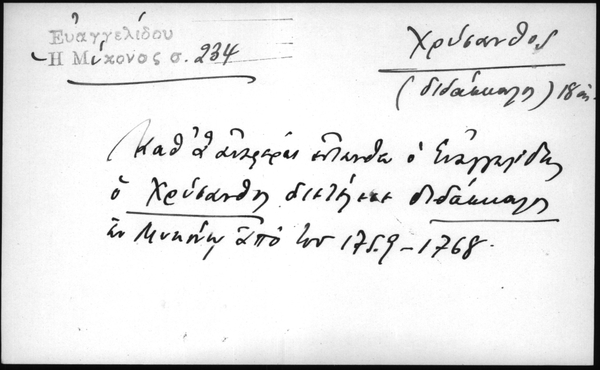 Εὐαγγελίδου
Ἡ Μύκονος σ. 234
Χρύσανθος
(διδάσκαλος) 18 αι.
Καθ' ἃ ἀναφέρει ἐνταῦθα ὁ Εὐαγγελίδης
ὁ Χρύσανθος διετέλεσε διδάσκαλος
ἐν Μυκόνῳ ἀπὸ του 1759-1768.